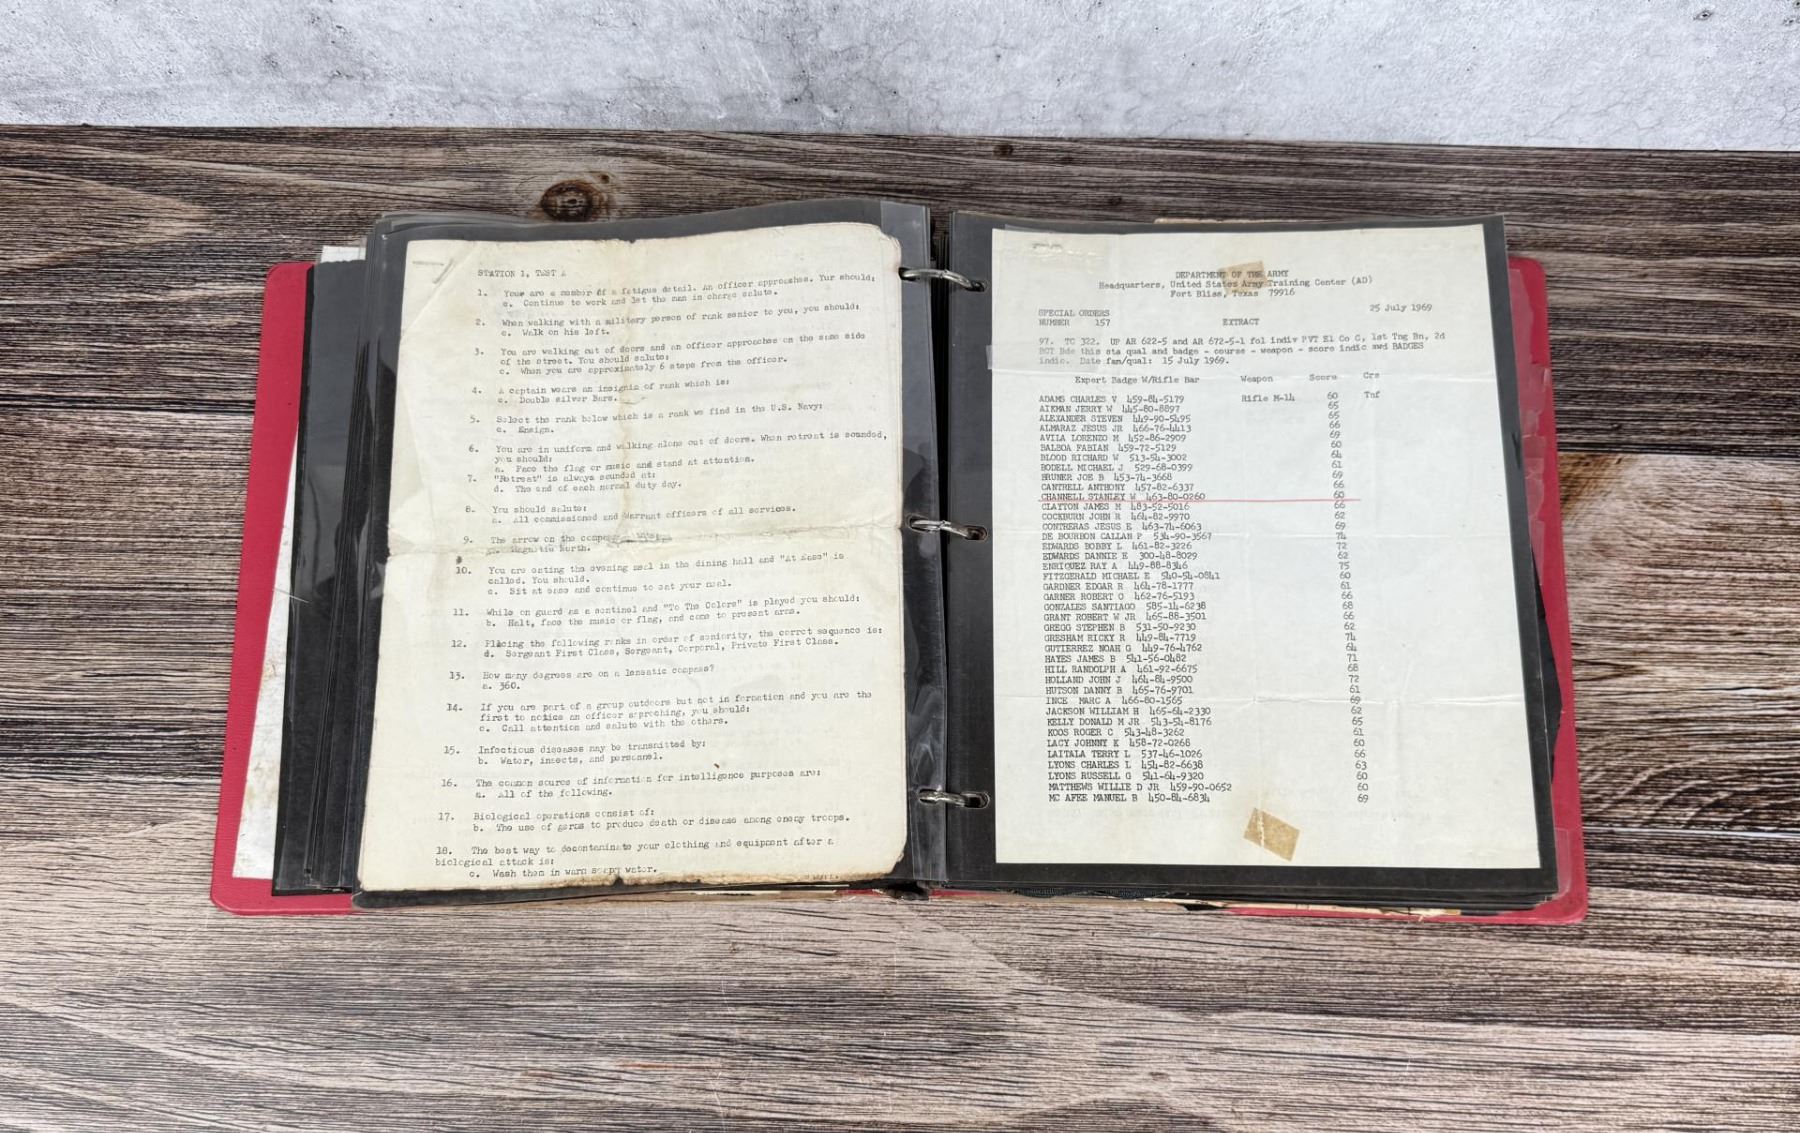 STATION 1, TEST A
1. Your are a member of a fatigue detail. An officer approaches. Yur should:
c. Continue to work and let the man in charge salute.
2. When walking with a military person of rank senior to you, you should:
c. Walk on his left.
3. You are walking out of doors and an officer approaches on the same side
of the street. You should salute:
c. When you are approximately 6 steps from the officer.
4. A captain wears an insignia of rank which is:
c. Double silver Bars.
5. Select the rank below which is a rank we find in the U.S. Navy:
c. Ensign.
6. You are in uniform and walking alone out of doors. When retreat is sounded,
you should:
a. Face the flag or music and stand at attention.
7. "Retreat" is always sounded at:
d. The end of each normal duty day.
8. You should salute:
a. All commissioned and Warrant officers of all services.
9. The arrow on the compass
Magnetic North.
10. You are eating the evening meal in the dining hall and "At Ease" is
called. You should.
c. Sit at ease and continue to eat your meal.
11. While on guard as a sentinel and "To The Colors" is played you should:
b. Halt, face the music or flag, and come to present arms.
12. Placing the following ranks in order of seniority, the corrct sequence is:
d. Sergeant First Class, Sergeant, Corporal, Private First Class.
13. How many degrees are on a lensatic compass?
a. 360.
14. If you are part of a group outdoors but not in formation and you are the
first to notice an officer approching, you should:
c. Call attention and salute with the others.
15. Infectious diseases may be transmitted by:
b. Water, insects, and personnel.
16. The common source of information for intelligence purposes are:
a. All of the following.
17. Biological operations consist of:
b. The use of germs to produce death or disease among enemy troops.
18. The best way to decontaminate your clothing and equipment after a
biological attack is:
c. Wash them in warm soapy water.
DEPARTMENT OF THE ARMY
Headquarters, United States Army Training Center (AD)
Fort Bliss, Texas 79916
25 July 1969
SPECIAL ORDERS
NUMBER 157 EXTRACT
97. TC 322. UP AR 622-5 and AR 672-5-1 fol indiv PVT E1 Co C, 1st Tng Bn, 2d
BCT Bde this sta qual and badge - course - weapon - score indic awd BADGES
indic. Date fan/qual: 15 July 1969.
Expert Badge W/Rifle Bar Weapon Score Crs
ADAMS CHARLES V [SSN] Rifle M-14 60 Tnf
AIKMAN JERRY W [SSN] 65
ALEXANDER STEVEN [SSN] 65
ALMARAZ JESUS JR [SSN] 66
AVILA LORENZO M [SSN] 69
BALBOA FABIAN [SSN] 60
BLOOD RICHARD W [SSN] 64
BODELL MICHAEL J [SSN] 61
BRUNER JOE B [SSN] 69
CANTRELL ANTHONY [SSN] 66
CHANNELL STANLEY W [SSN] 60
CLAYTON JAMES M [SSN] 66
COCKBURN JOHN R [SSN] 62
CONTRERAS JESUS E [SSN] 69
DE BOURBON CALLAN P [SSN] 74
EDWARDS BOBBY L [SSN] 72
EDWARDS DANNIE E [SSN] 62
ENRIQUEZ RAY A [SSN] 75
FITZGERALD MICHAEL E [SSN] 60
GARDNER EDGAR R [SSN] 61
GARNER ROBERT O [SSN] 66
GONZALES SANTIAGO [SSN] 68
GRANT ROBERT W JR [SSN] 66
GREGG STEPHEN B [SSN] 62
GRESHAM RICKY R [SSN] 74
GUTIERREZ NOAH G [SSN] 64
HAYES JAMES B [SSN] 71
HILL RANDOLPH A [SSN] 68
HOLLAND JOHN J [SSN] 72
HUTSON DANNY B [SSN] 61
INCE MARC A [SSN] 69
JACKSON WILLIAM H [SSN] 62
KELLY DONALD M JR [SSN] 65
KOOS ROGER C [SSN] 61
LACY JOHNNY K [SSN] 60
LAITALA TERRY L [SSN] 66
LYONS CHARLES L [SSN] 63
LYONS RUSSELL G [SSN] 60
MATTHEWS WILLIE D JR [SSN] 60
MC AFEE MANUEL B [SSN] 69